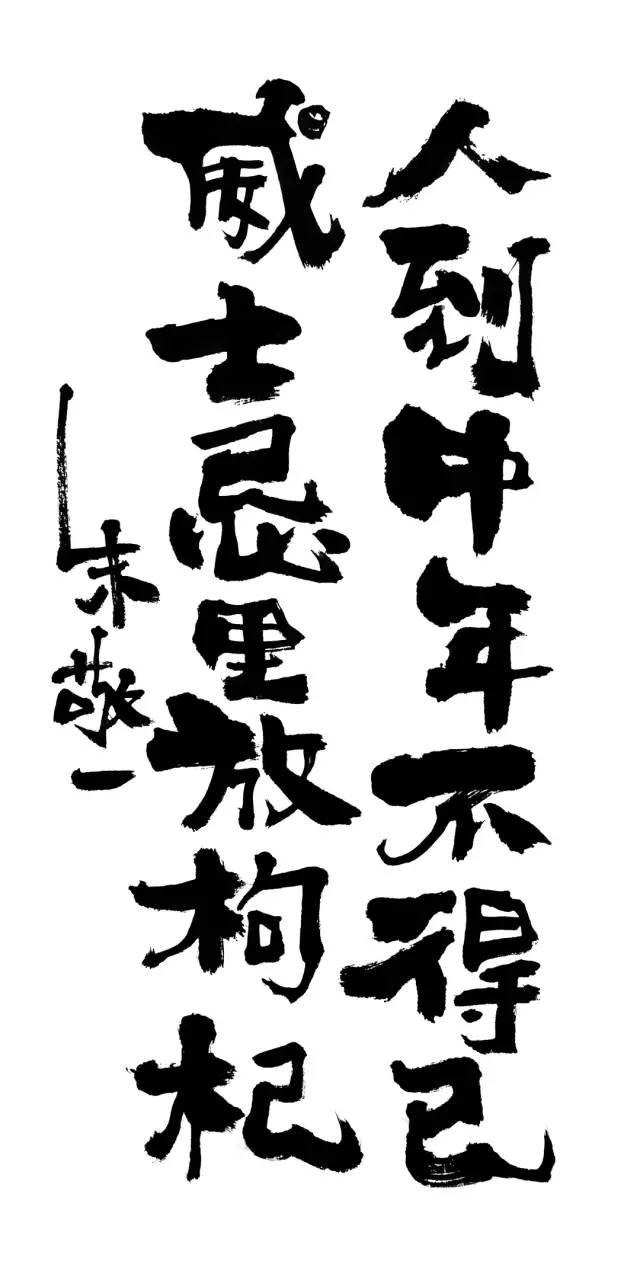 人到中年不得已
威士忌里放枸杞
朱敬一